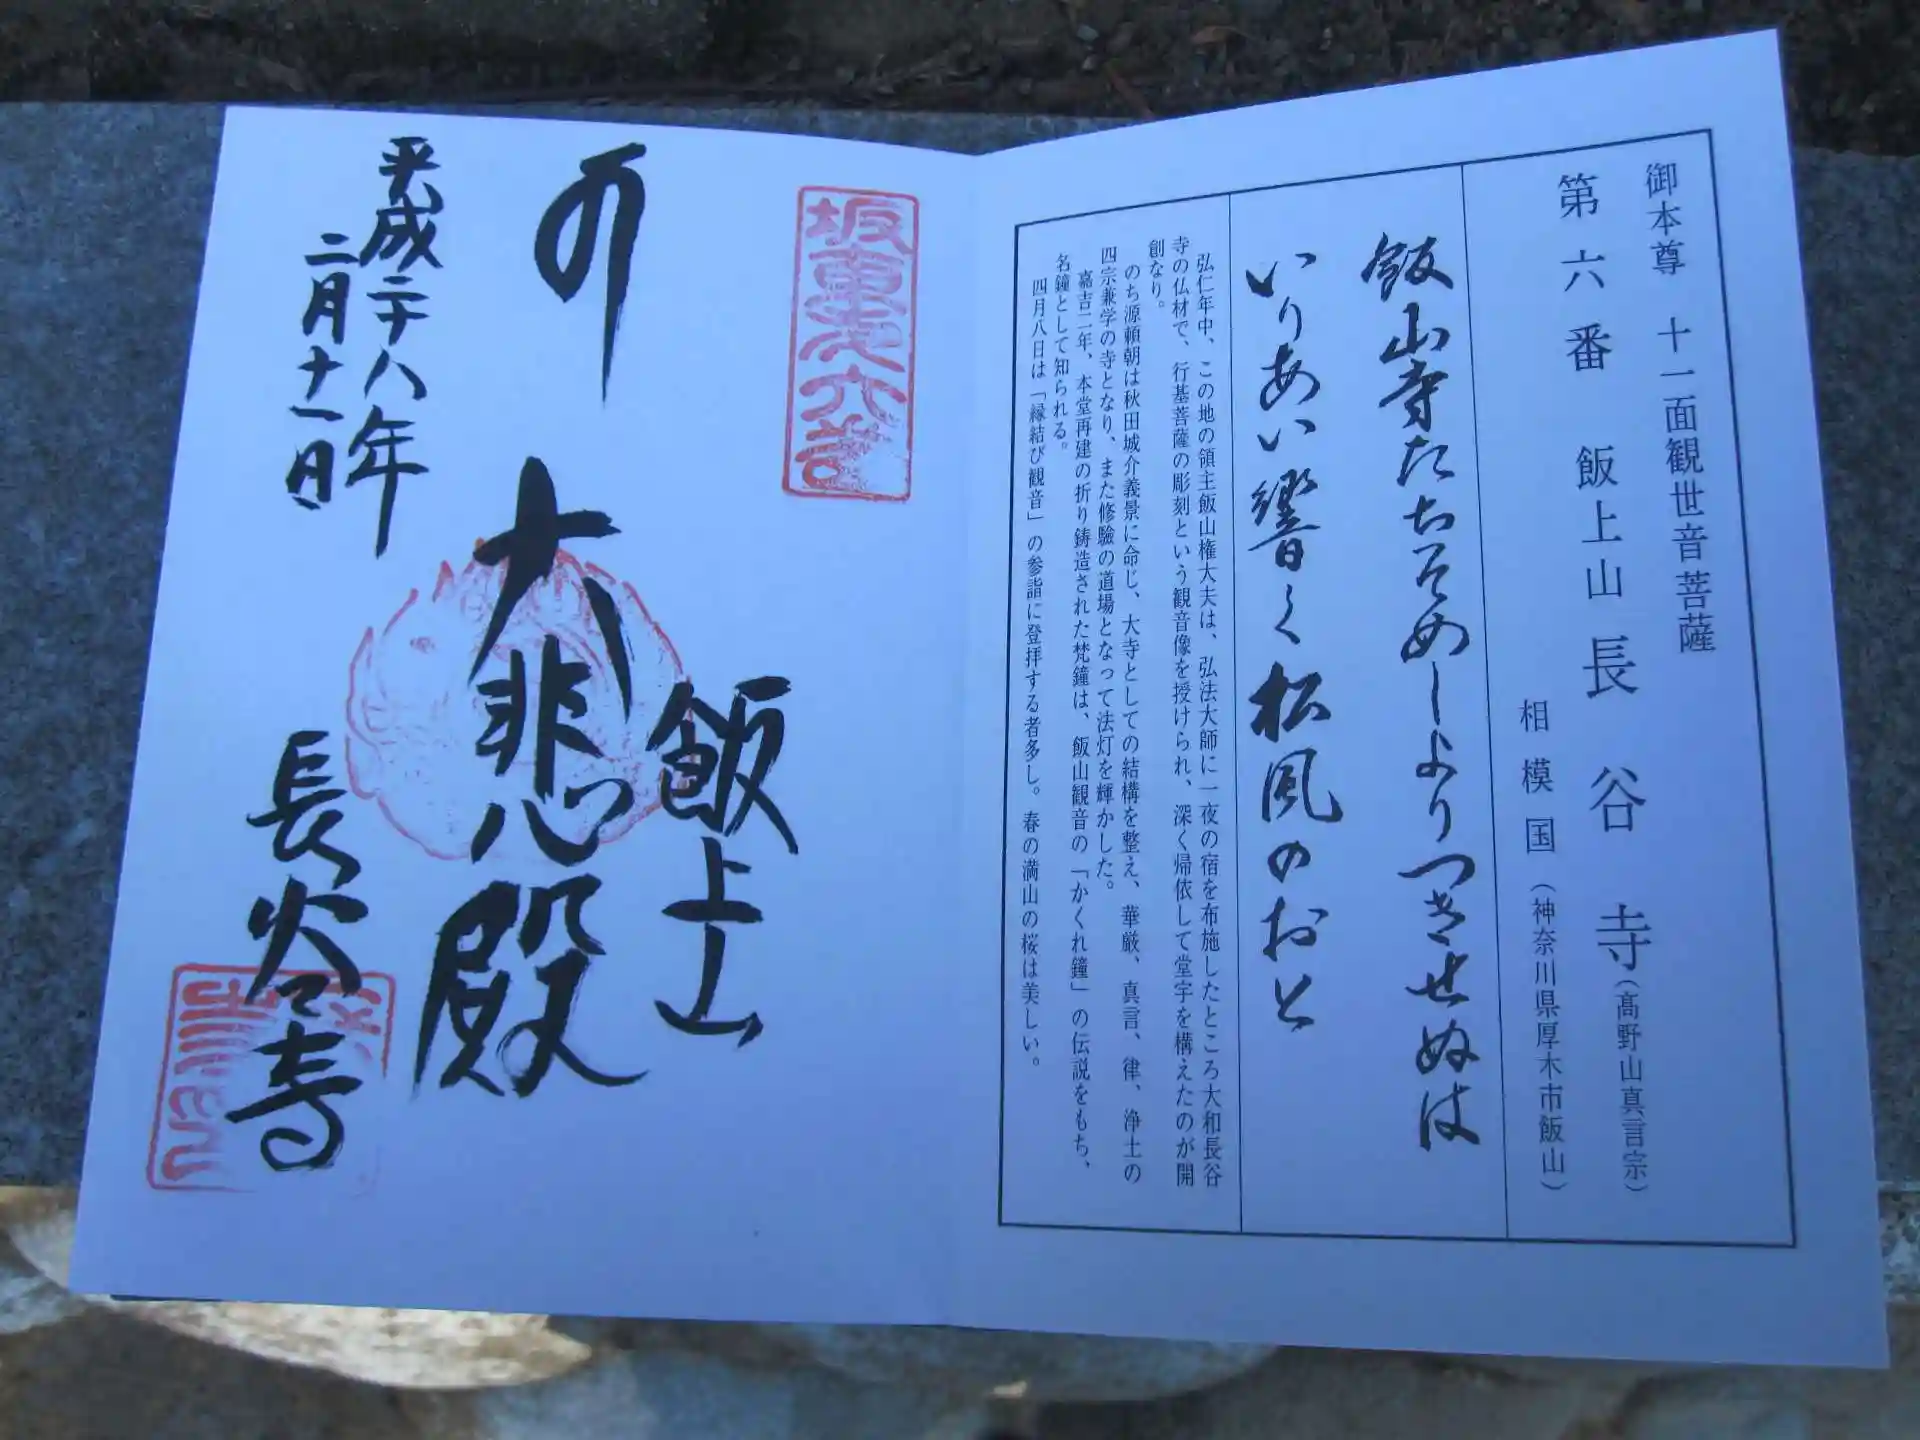 御本尊 十一面観世音菩薩
第六番 飯上山長谷寺（高野山真言宗）
相模国（神奈川県厚木市飯山）
飯山寺たちそめしよりつきせぬは
いりあい響く松風のおと
弘仁年中、この地の領主飯山権大夫は、弘法大師に一夜の宿を布施したところ大和長谷
寺の仏材で、行基菩薩の彫刻という観音像を授けられ、深く帰依して堂宇を構えたのが開
創なり。
のち源頼朝は秋田城介義景に命じ、大寺としての結構を整え、華厳、真言、律、浄土の
四宗兼学の寺となり、また修験の道場となって法灯を輝かした。
嘉吉二年、本堂再建の折り鋳造された梵鐘は、飯山観音の「かくれ鐘」の伝説をもち、
名鐘として知られる。
四月八日は「縁結び観音」の参詣に登拝する者多し。春の満山の桜は美しい。
坂東六番
飯上山
大悲殿
平成二十八年
二月十一日
長谷寺